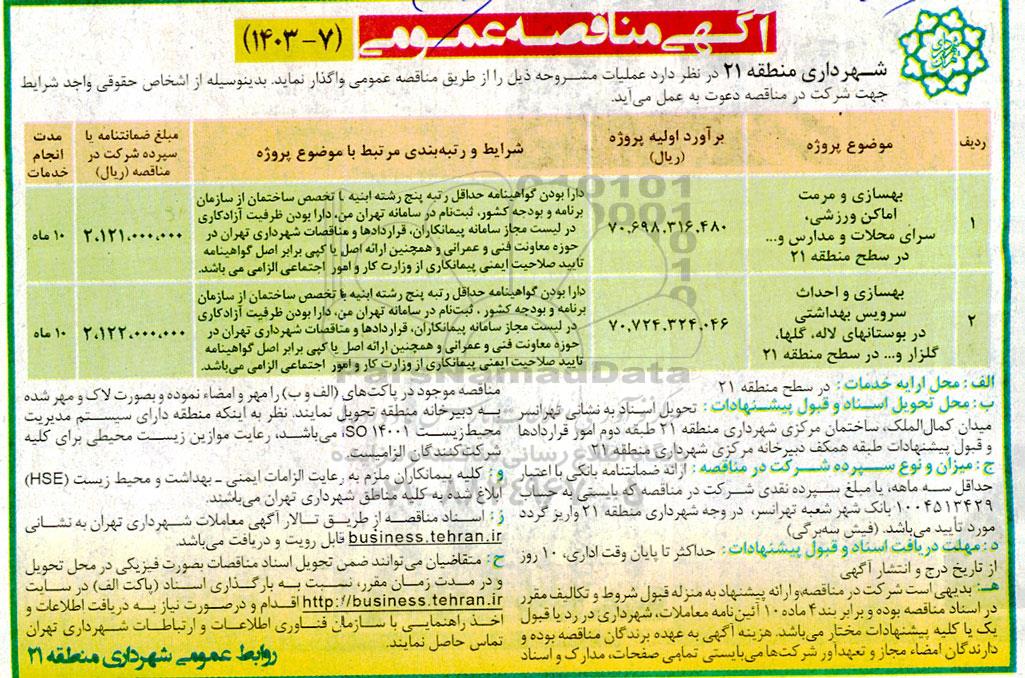 آگهی مناقصه عمومی (۷-۱۴۰۳)
شهرداری منطقه ۲۱ در نظر دارد عملیات مشروحه ذیل را از طریق مناقصه عمومی واگذار نماید. بدینوسیله از اشخاص حقوقی واجد شرایط
جهت شرکت در مناقصه دعوت به عمل می‌آید.
ردیف
موضوع پروژه
برآورد اولیه پروژه
(ریال)
شرایط و رتبه‌بندی مرتبط با موضوع پروژه
مبلغ ضمانتنامه یا
سپرده شرکت در
مناقصه (ریال)
مدت
انجام
خدمات
۱
بهسازی و مرمت
اماکن ورزشی،
سرای محلات و مدارس و...
در سطح منطقه ۲۱
۷۰.۶۹۸.۳۱۶.۴۸۰
دارا بودن گواهینامه حداقل رتبه پنج رشته ابنیه یا تخصص ساختمان از سازمان
برنامه و بودجه کشور، ثبت‌نام در سامانه تهران من، دارا بودن ظرفیت آزادکاری
در لیست مجاز سامانه پیمانکاران، قراردادها و مناقصات شهرداری تهران در
حوزه معاونت فنی و عمرانی و همچنین ارائه اصل یا کپی برابر اصل گواهینامه
تایید صلاحیت ایمنی پیمانکاری از وزارت کار و امور اجتماعی الزامی می باشد.
۲.۱۲۱.۰۰۰.۰۰۰
۱۰ ماه
۲
بهسازی و احداث
سرویس بهداشتی
در بوستانهای لاله، گلها،
گلزار و... در سطح منطقه ۲۱
۷۰.۷۲۴.۳۲۴.۰۴۶
دارا بودن گواهینامه حداقل رتبه پنج رشته ابنیه یا تخصص ساختمان از سازمان
برنامه و بودجه کشور ، ثبت‌نام در سامانه تهران من، دارا بودن ظرفیت آزادکاری
در لیست مجاز سامانه پیمانکاران، قراردادها و مناقصات شهرداری تهران در
حوزه معاونت فنی و عمرانی و همچنین ارائه اصل یا کپی برابر اصل گواهینامه
تایید صلاحیت ایمنی پیمانکاری از وزارت کار و امور اجتماعی الزامی می‌باشد.
۲.۱۲۲.۰۰۰.۰۰۰
۱۰ ماه
الف: محل ارایه خدمات : در سطح منطقه ۲۱
ب: محل تحویل اسناد و قبول پیشنهادات : تحویل اسناد به نشانی تهرانسر
میدان کمال‌الملک، ساختمان مرکزی شهرداری منطقه ۲۱ طبقه دوم امور قراردادها
و قبول پیشنهادات طبقه همکف دبیرخانه مرکزی شهرداری منطقه ۲۱
ج: میزان و نوع سپرده شرکت در مناقصه : ارائه ضمانتنامه بانکی با اعتبار
حداقل سه ماهه، یا مبلغ سپرده نقدی شرکت در مناقصه که بایستی به حساب
۱۰۰۴۵۱۳۴۲۹ بانک شهر شعبه تهرانسر، در وجه شهرداری منطقه ۲۱ واریز گردد
مورد تأیید می‌باشد. (فیش سه‌برگی)
د: مهلت دریافت اسناد و قبول پیشنهادات : حداکثر تا پایان وقت اداری، ۱۰ روز
از تاریخ درج و انتشار آگهی
هـ: بدیهی است شرکت در مناقصه، و ارائه پیشنهاد به منزله قبول شروط و تکالیف مقرر
در اسناد مناقصه بوده و برابر بند ۴ ماده ۱۰ آئین‌نامه معاملات، شهرداری در رد یا قبول
یک یا کلیه پیشنهادات مختار می‌باشد. هزینه آگهی به عهده برندگان مناقصه بوده و
دارندگان امضاء مجاز و تعهدآور شرکت‌ها می‌بایستی تمامی صفحات، مدارک و اسناد
مناقصه موجود در پاکت‌های (الف و ب) را مهر و امضاء نموده و بصورت لاک و مهر شده
به دبیرخانه منطقه تحویل نمایند. نظر به اینکه منطقه دارای سیستم مدیریت
محیط‌زیست ISO 14001 می‌باشد، رعایت موازین زیست محیطی برای کلیه
شرکت‌کنندگان الزامیست.
و : کلیه پیمانکاران ملزم به رعایت الزامات ایمنی ـ بهداشت و محیط زیست (HSE)
ابلاغ شده به کلیه مناطق شهرداری تهران می‌باشند.
ز: اسناد مناقصه از طریق تالار آگهی معاملات شهرداری تهران به نشانی
business.tehran.ir قابل رویت و دریافت می‌باشد.
ح: متقاضیان می‌توانند ضمن تحویل اسناد مناقصات بصورت فیزیکی در محل تحویل
و در مدت زمان مقرر، نسبت به بارگذاری اسناد (پاکت الف) در سایت
http://business.tehran.ir اقدام و درصورت نیاز به دریافت اطلاعات و
اخذ راهنمایی با سازمان فناوری اطلاعات و ارتباطات شهرداری تهران
تماس حاصل نمایند.
روابط عمومی شهرداری منطقه ۲۱
ParsNamadData